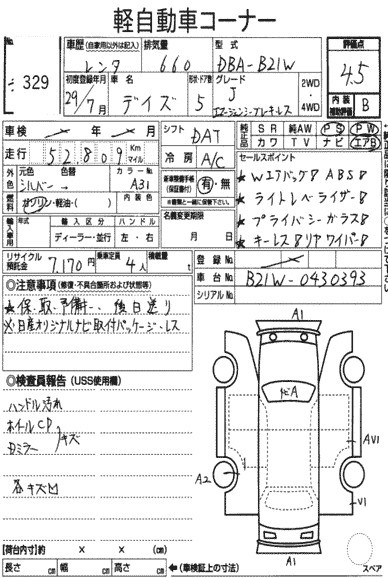 軽自動車コーナー
No.
329
車歴 (自家用以外は記入) 排気量 型式
レンタ 660 DBA-B21W
評価点
4.5
初度登録年月 車名 形状・ドア数 グレード
29年7月 デイズ 5 J
エマージェンシーブレーキレス
2WD・4WD
内装補助評価 B
車検 年 月
走行 52809 Km マイル
シフト DAT
冷房 A/C
純正品 SR 純AW PS PW
カワ TV ナビ エアB
外色 元色 色替 カラーNo.
シルバー A31
燃料 ガソリン・軽油・( ) 内装色
新車整備手帳 (保証書付) 有・無
★書類と一緒に保管下さい。
セールスポイント
★WエアバッグB ABSB
★ライトレベライザーB
★プライバシーガラスB
★キーレスB リヤワイパーB
輸入車用 年式 輸入区分 ハンドル
ディーラー・並行 左・右
名義変更期限
月 日
リサイクル預託金 7,170円 乗車定員 4人 積載量 t
登録No.
車台No. B21W-0430393
シリアルNo.
◎注意事項 (修復・不具合箇所および状態等)
★保、取、予備キー、後日送り
※日産オリジナルナビ取付パッケージ・レス
◎検査員報告 (USS使用欄)
ハンドル汚れ
ホイールCP、キズ
Dミラー
各キズ凹
A1
A
AV1
A2
V1
A1
スペア
【荷台内寸】約 × × (cm)
長さ cm 幅 cm 高さ cm
←(車検証上の寸法)